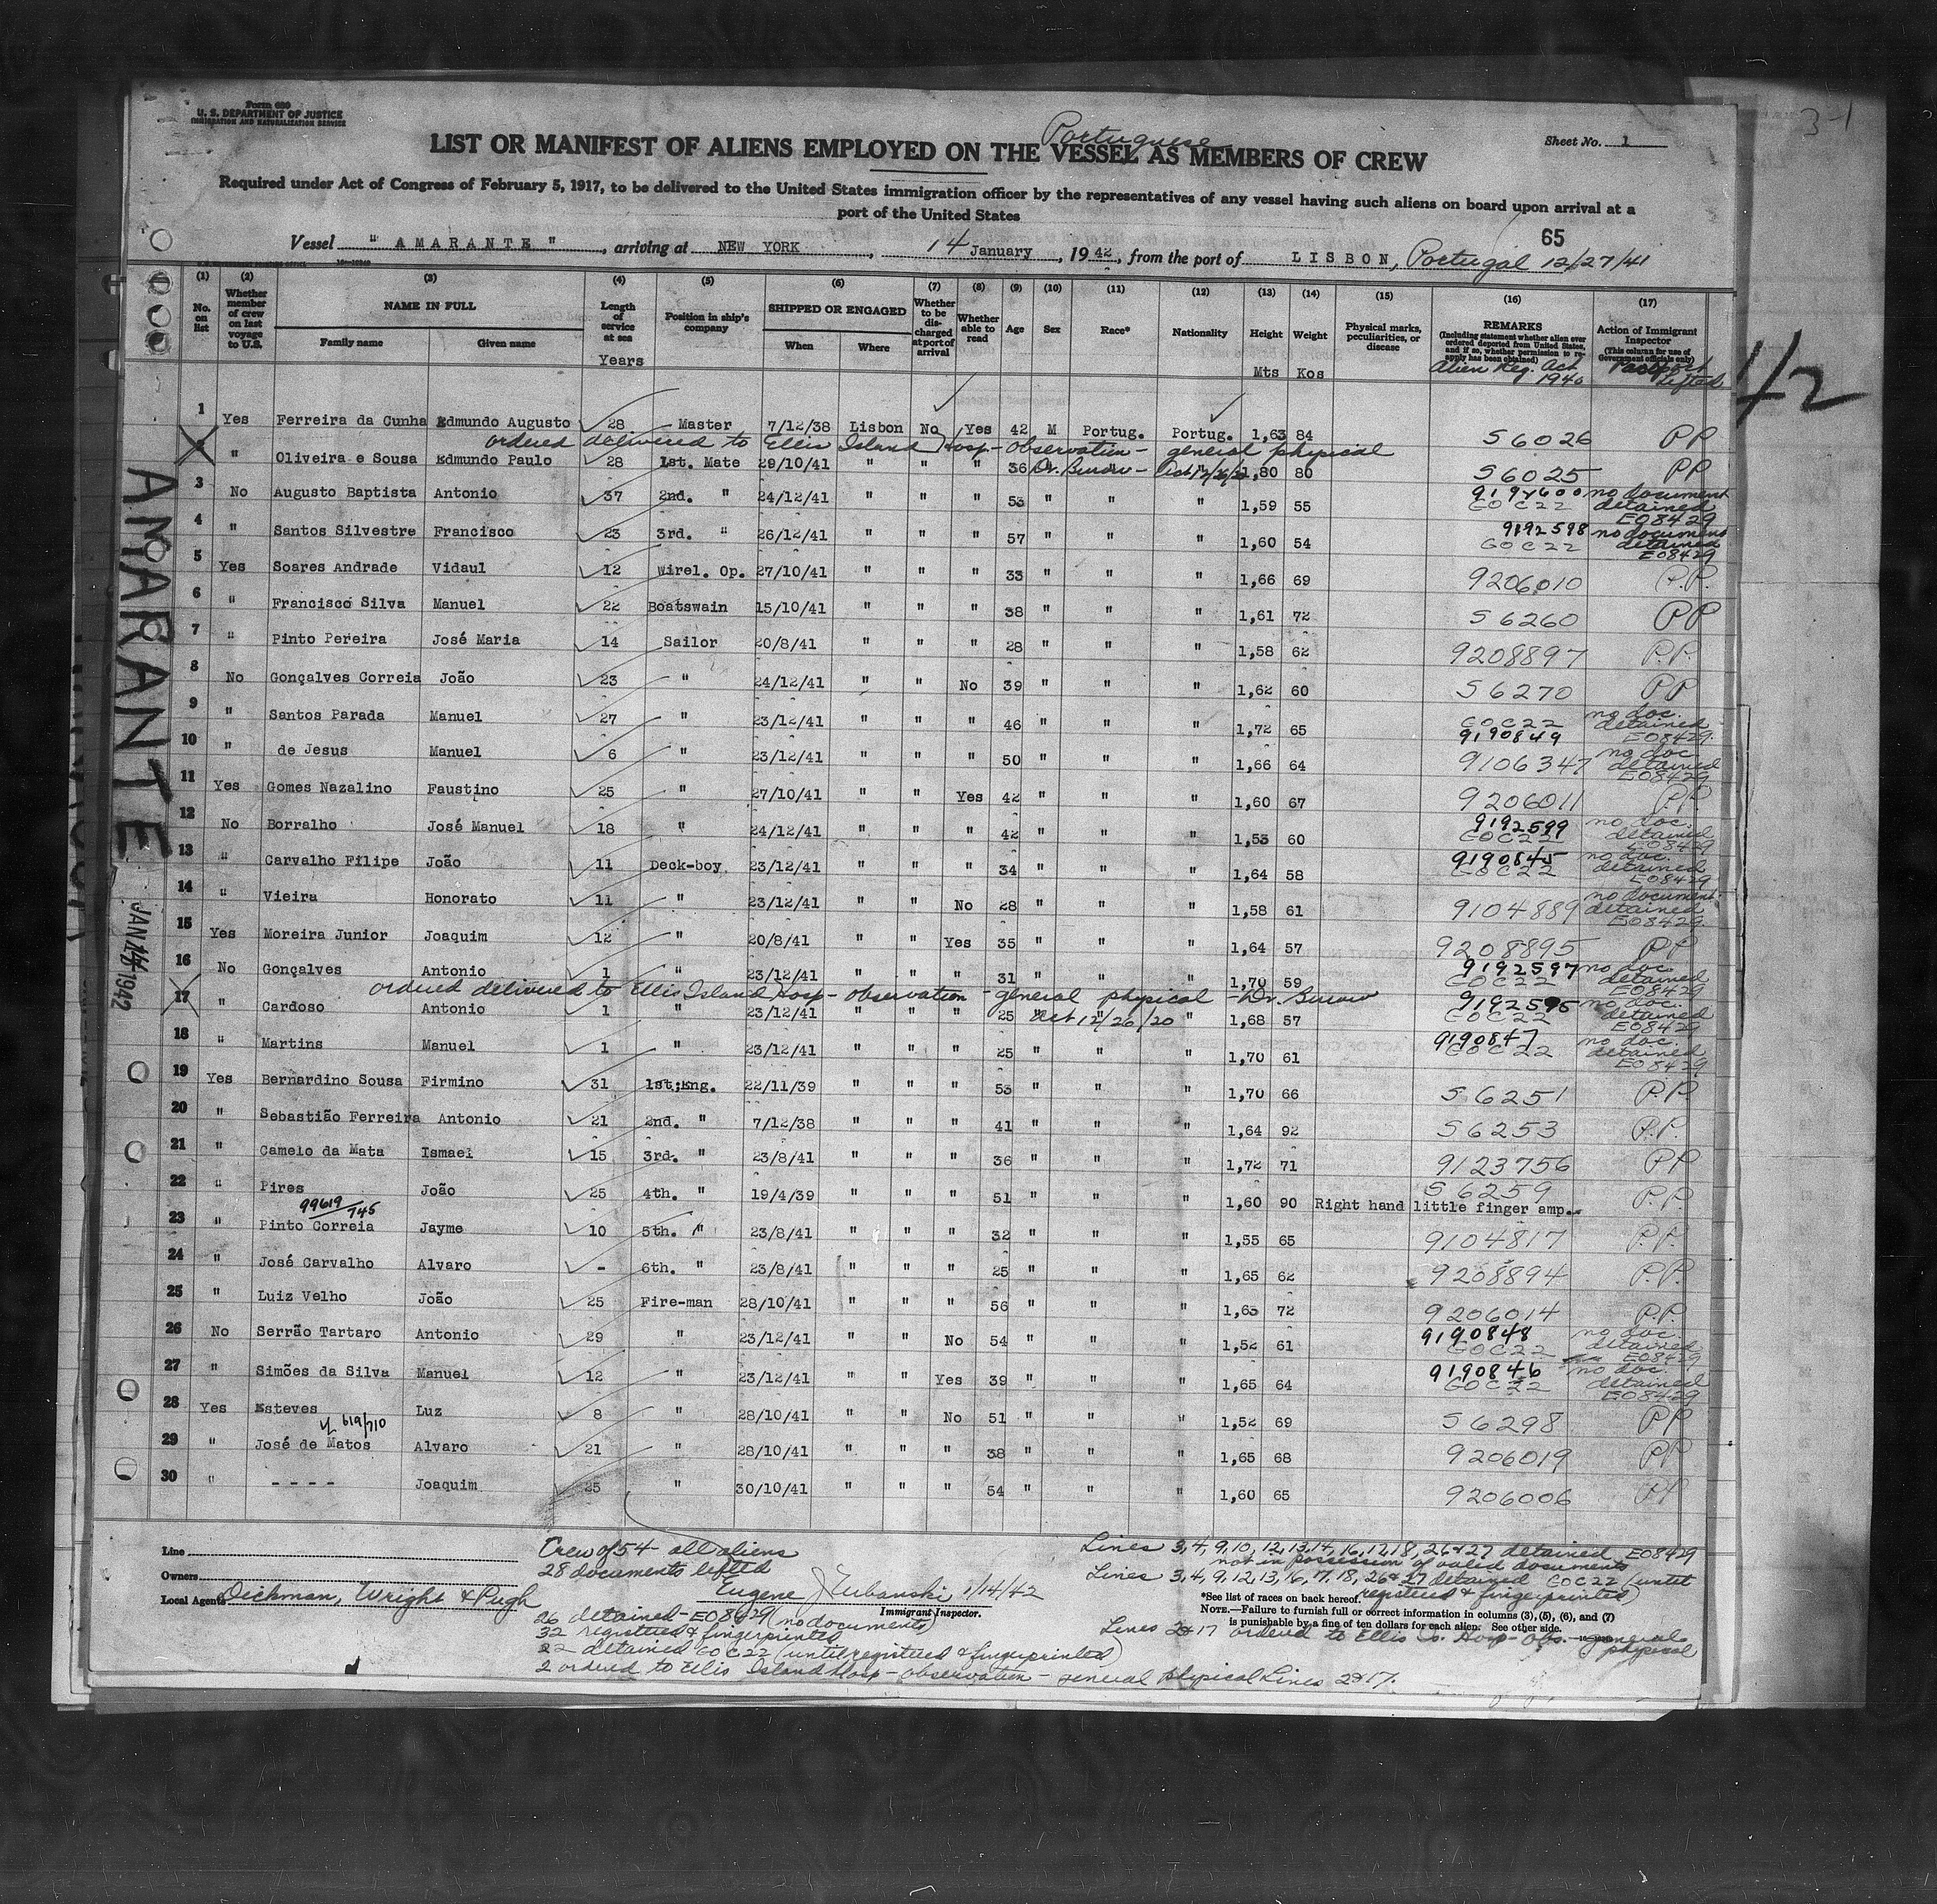 3-1
Form 680
U. S. DEPARTMENT OF JUSTICE
IMMIGRATION AND NATURALIZATION SERVICE
Sheet No. 1
Portuguese
LIST OR MANIFEST OF ALIENS EMPLOYED ON THE VESSEL AS MEMBERS OF CREW
Required under Act of Congress of February 5, 1917, to be delivered to the United States immigration officer by the representatives of any vessel having such aliens on board upon arrival at a
port of the United States
65
Vessel " AMARANTE ", arriving at NEW YORK, 14 January, 1942, from the port of LISBON, Portugal 12/27/41
(1) No. on list (2) Whether member of crew on last voyage to U.S. (3) NAME IN FULL Family name Given name (4) Length of service at sea Years (5) Position in ship's company (6) SHIPPED OR ENGAGED When Where (7) Whether to be discharged at port of arrival (8) Whether able to read (9) Age (10) Sex (11) Race* (12) Nationality (13) Height Mts (14) Weight Kos (15) Physical marks, peculiarities, or disease (16) REMARKS (Including statement whether alien ever ordered deported from United States, and if so, whether permission to reapply has been obtained) Alien Reg. Act 1940 (17) Action of Immigrant Inspector (This column for use of Government officials only) Passport lifted
1/2
1 Yes Ferreira da Cunha Edmundo Augusto 28 Master 7/12/38 Lisbon No Yes 42 M Portug. Portug. 1,63 84 56026 PP
ordered delivered to Ellis Island Hosp - observation - general physical
" Oliveira e Sousa Edmundo Paulo 28 1st. Mate 29/10/41 " " " 36 Dr. Burow - Act 12/26/20 1,80 80 56025 PP
3 No Augusto Baptista Antonio 37 2nd. " 24/12/41 " " " 53 " " " 1,59 55 GOC22 no document detained E08429
4 " Santos Silvestre Francisco 23 3rd. " 26/12/41 " " " 57 " " " 1,60 54 9192598 GOC22 no document detained E08429
5 Yes Soares Andrade Vidaul 12 Wirel. Op. 27/10/41 " " " 33 " " " 1,66 69 9206010 P.P.
6 " Francisco Silva Manuel 22 Boatswain 15/10/41 " " " 38 " " " 1,61 72 56260 PP
7 " Pinto Pereira José Maria 14 Sailor 20/8/41 " " " 28 " " " 1,58 62 9208897 P.P.
8 No Gonçalves Correia João 23 " 24/12/41 " " No 39 " " " 1,62 60 56270 PP
9 " Santos Parada Manuel 27 " 23/12/41 " " " 46 " " " 1,72 65 GOC22 9190849 no doc. detained E08429
10 " de Jesus Manuel 6 " 23/12/41 " " " 50 " " " 1,66 64 9106347 no doc detained E08429
11 Yes Gomes Nazalino Faustino 25 " 27/10/41 " " Yes 42 " " " 1,60 67 9206011 PP
12 No Borralho José Manuel 18 " 24/12/41 " " " 42 " " " 1,53 60 9192599 GOC22 no doc. detained E08429
13 " Carvalho Filipe João 11 Deck-boy 23/12/41 " " " 34 " " " 1,64 58 9190845 GOC22 no doc. detained E08429
14 " Vieira Honorato 11 " 23/12/41 " " No 28 " " " 1,58 61 9104889 no document detained E08429
15 Yes Moreira Junior Joaquim 12 " 20/8/41 " " Yes 35 " " " 1,64 57 9208895 PP
16 No Gonçalves Antonio 1 " 23/12/41 " " " 31 " " " 1,70 59 9192597 GOC22 no doc detained E08429
ordered delivered to Ellis Island Hosp - observation - general physical - Dr. Burow
17 " Cardoso Antonio 1 " 23/12/41 " " " 25 " Act 12/26/20 " 1,68 57 9192595 GOC22 no doc. detained E08429
18 " Martins Manuel 1 " 23/12/41 " " " 25 " " " 1,70 61 9190847 GOC22 no doc. detained E08429
19 Yes Bernardino Sousa Firmino 31 1st;Eng. 22/11/39 " " " 53 " " " 1,70 66 56251 P.P.
20 " Sebastião Ferreira Antonio 21 2nd. " 7/12/38 " " " 41 " " " 1,64 92 56253 P.P.
21 " Camelo da Mata Ismael 15 3rd. " 23/8/41 " " " 36 " " " 1,72 71 9123756 PP
22 " Pires João 25 4th. " 19/4/39 " " " 51 " " " 1,60 90 Right hand little finger amp. 56259 P.P.
99619/745
23 " Pinto Correia Jayme 10 5th. " 23/8/41 " " " 32 " " " 1,55 65 9104817 P.P.
24 " José Carvalho Alvaro - 6th. " 23/8/41 " " " 25 " " " 1,65 62 9208894 P.P.
25 " Luiz Velho João 25 Fire-man 28/10/41 " " " 56 " " " 1,63 72 9206014 P.P.
26 No Serrão Tartaro Antonio 29 " 23/12/41 " " No 54 " " " 1,52 61 9190848 GOC22 no doc. detained E08429
27 " Simões da Silva Manuel 12 " 23/12/41 " " Yes 39 " " " 1,65 64 9190846 GOC22 no doc. detained E08429
28 Yes Esteves Luz 8 " 28/10/41 " " No 51 " " " 1,52 69 56298 PP
619/710
29 " José de Matos Alvaro 21 " 28/10/41 " " " 38 " " " 1,65 68 9206019 PP
30 " - - - - Joaquim 25 " 30/10/41 " " " 54 " " " 1,60 65 9206006 PP
AMARANTE
JAN 14 1942
Line
Owners
Local Agents Dickman, Wright & Pugh
Crew of 54 - all aliens
28 documents lifted
Eugene J Zubanski 1/14/42
Immigrant Inspector.
26 detained - E08429 (no documents)
32 registered & fingerprinted
22 detained GOC22 (until registered & fingerprinted)
2 ordered to Ellis Island Hosp - observation - general physical Lines 2&17.
Lines 3,4,9,10,12,13,14,16,17,18,26&27 detained E08429
not in possession of valid documents
Lines 3,4,9,12,13,16,17,18,26&27 detained GOC22 (until
registered & fingerprinted)
*See list of races on back hereof.
NOTE.—Failure to furnish full or correct information in columns (3), (5), (6), and (7)
is punishable by a fine of ten dollars for each alien. See other side.
Lines 2&17 ordered to Ellis Is. Hosp - Obs. - general
physical